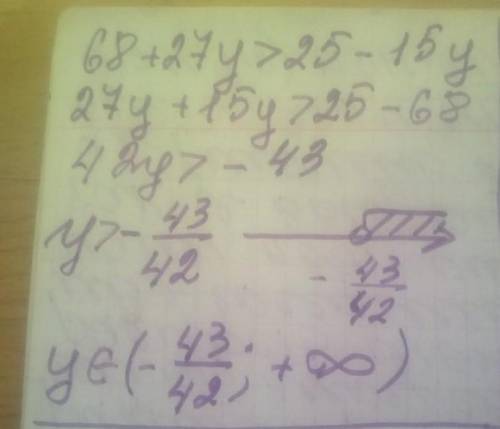 68+27y>25-15y
27y+15y>25-68
42y>-43
y>-43/42
-43/42
y∈(-43/42; +∞)